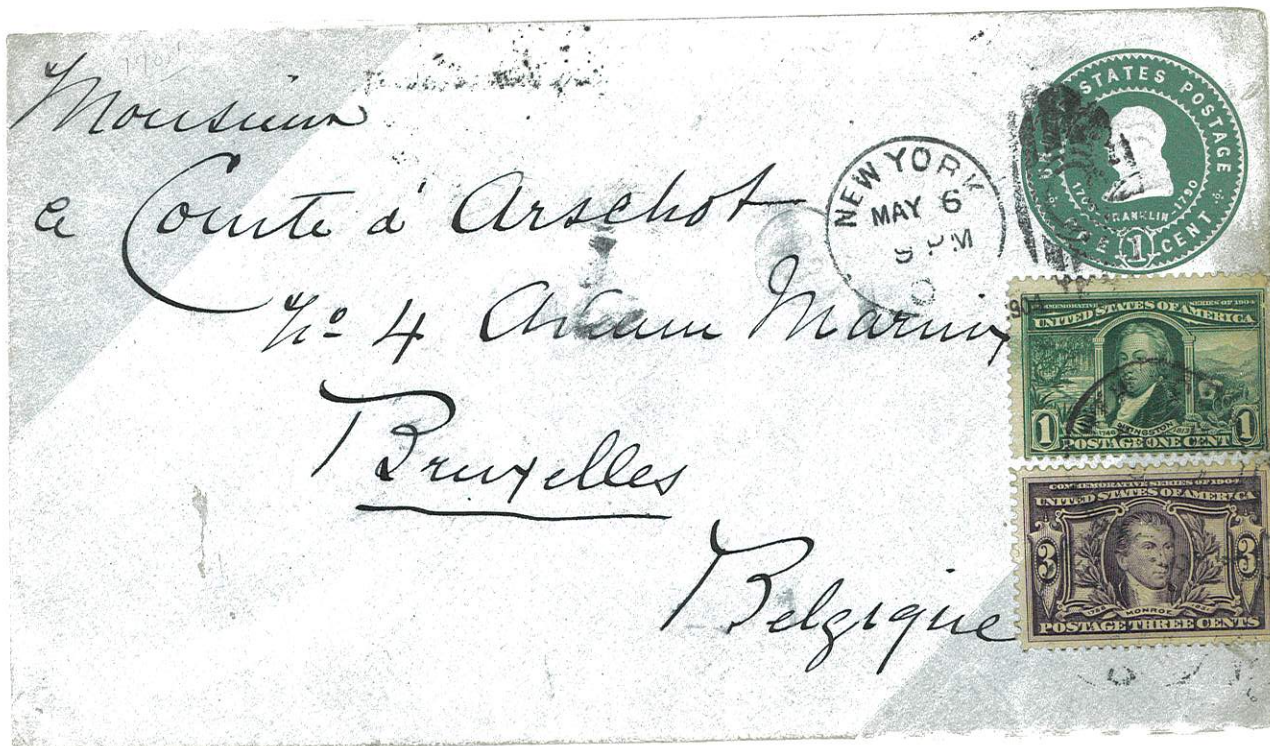 Monsieur
Comte d'Arschot
No 4
Bruxelles
Belgique
NEW YORK
MAY 6
PM
STATES POSTAGE
FRANKLIN 1790
1 CENT
COMMEMORATIVE SERIES OF 1904
UNITED STATES OF AMERICA
LIVINGSTON
1 1
POSTAGE ONE CENT
COMMEMORATIVE SERIES OF 1904
UNITED STATES OF AMERICA
3 3
MONROE
POSTAGE THREE CENTS